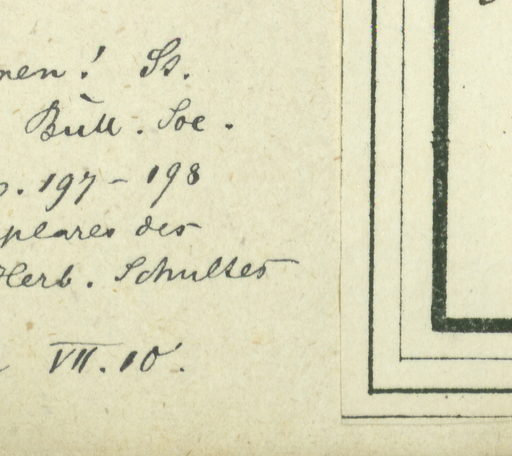 men! Ss.
Bull. Soc.
p. 197-198
plares des
Herb. Schultes
VII. 10.